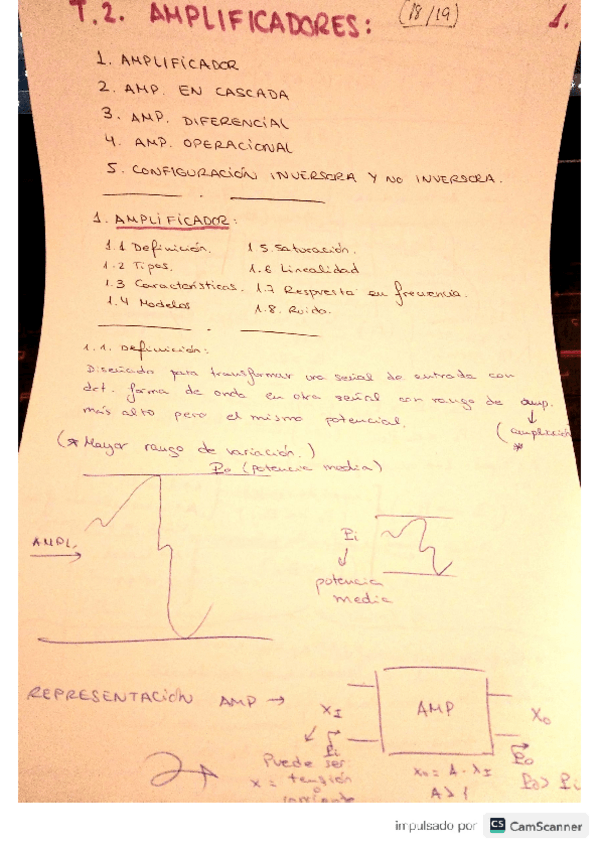 T.2. AMPLIFICADORES: (18/19) 1.
1. AMPLIFICADOR
2. AMP. EN CASCADA
3. AMP. DIFERENCIAL
4. AMP. OPERACIONAL
5. CONFIGURACIÓN INVERSORA Y NO INVERSORA.
1. AMPLIFICADOR:
1.1 Definición. 1.5. Saturación.
1.2 Tipos. 1.6 Linealidad
1.3 Características. 1.7 Respuesta en frecuencia.
1.4 Modelos 1.8. Ruido.
1.1. Definición:
Diseñado para transformar una señal de entrada con
det. forma de onda en otra señal con rango de amp.
más alto pero el mismo potencial. (amplitud)
*
(* Mayor rango de variación.)
Po (potencia media)
AMPL.
Pi
potencia
media
REPRESENTACIÓN AMP →
XI
Pi
AMP
Xo
Po
Po > Pi
Puede ser
x = tensión
o
corriente
xo = A · xI
A > 1
impulsado por CS CamScanner